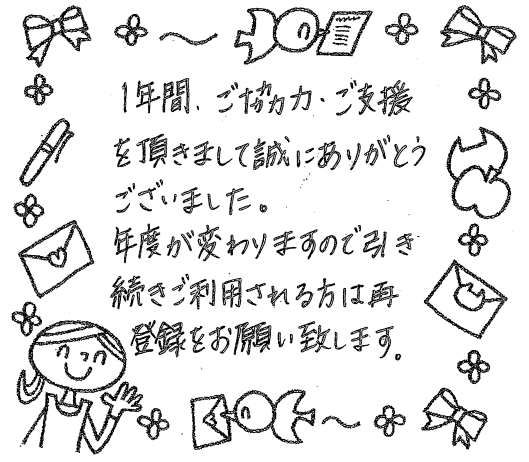 1年間、ご協力・ご支援
を頂きまして誠にありがとう
ございました。
年度が変わりますので引き
続きご利用される方は再
登録をお願い致します。